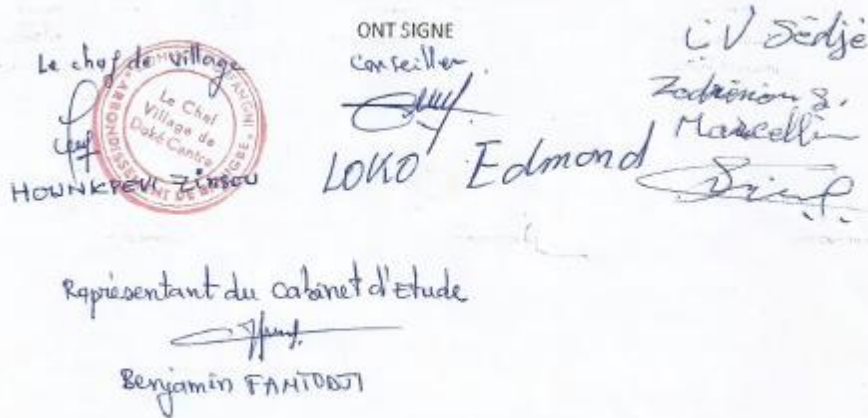 ONT SIGNE
Le chef de village
Le Chef
Village de
Daké Centre
ARRONDISSEMENT DE
HOUNKPEVI ZINSOU
Conseiller
LOKO Edmond
CV Sèdje
Marcellin
Représentant du Cabinet d'Etude
Benjamin FANTODJI